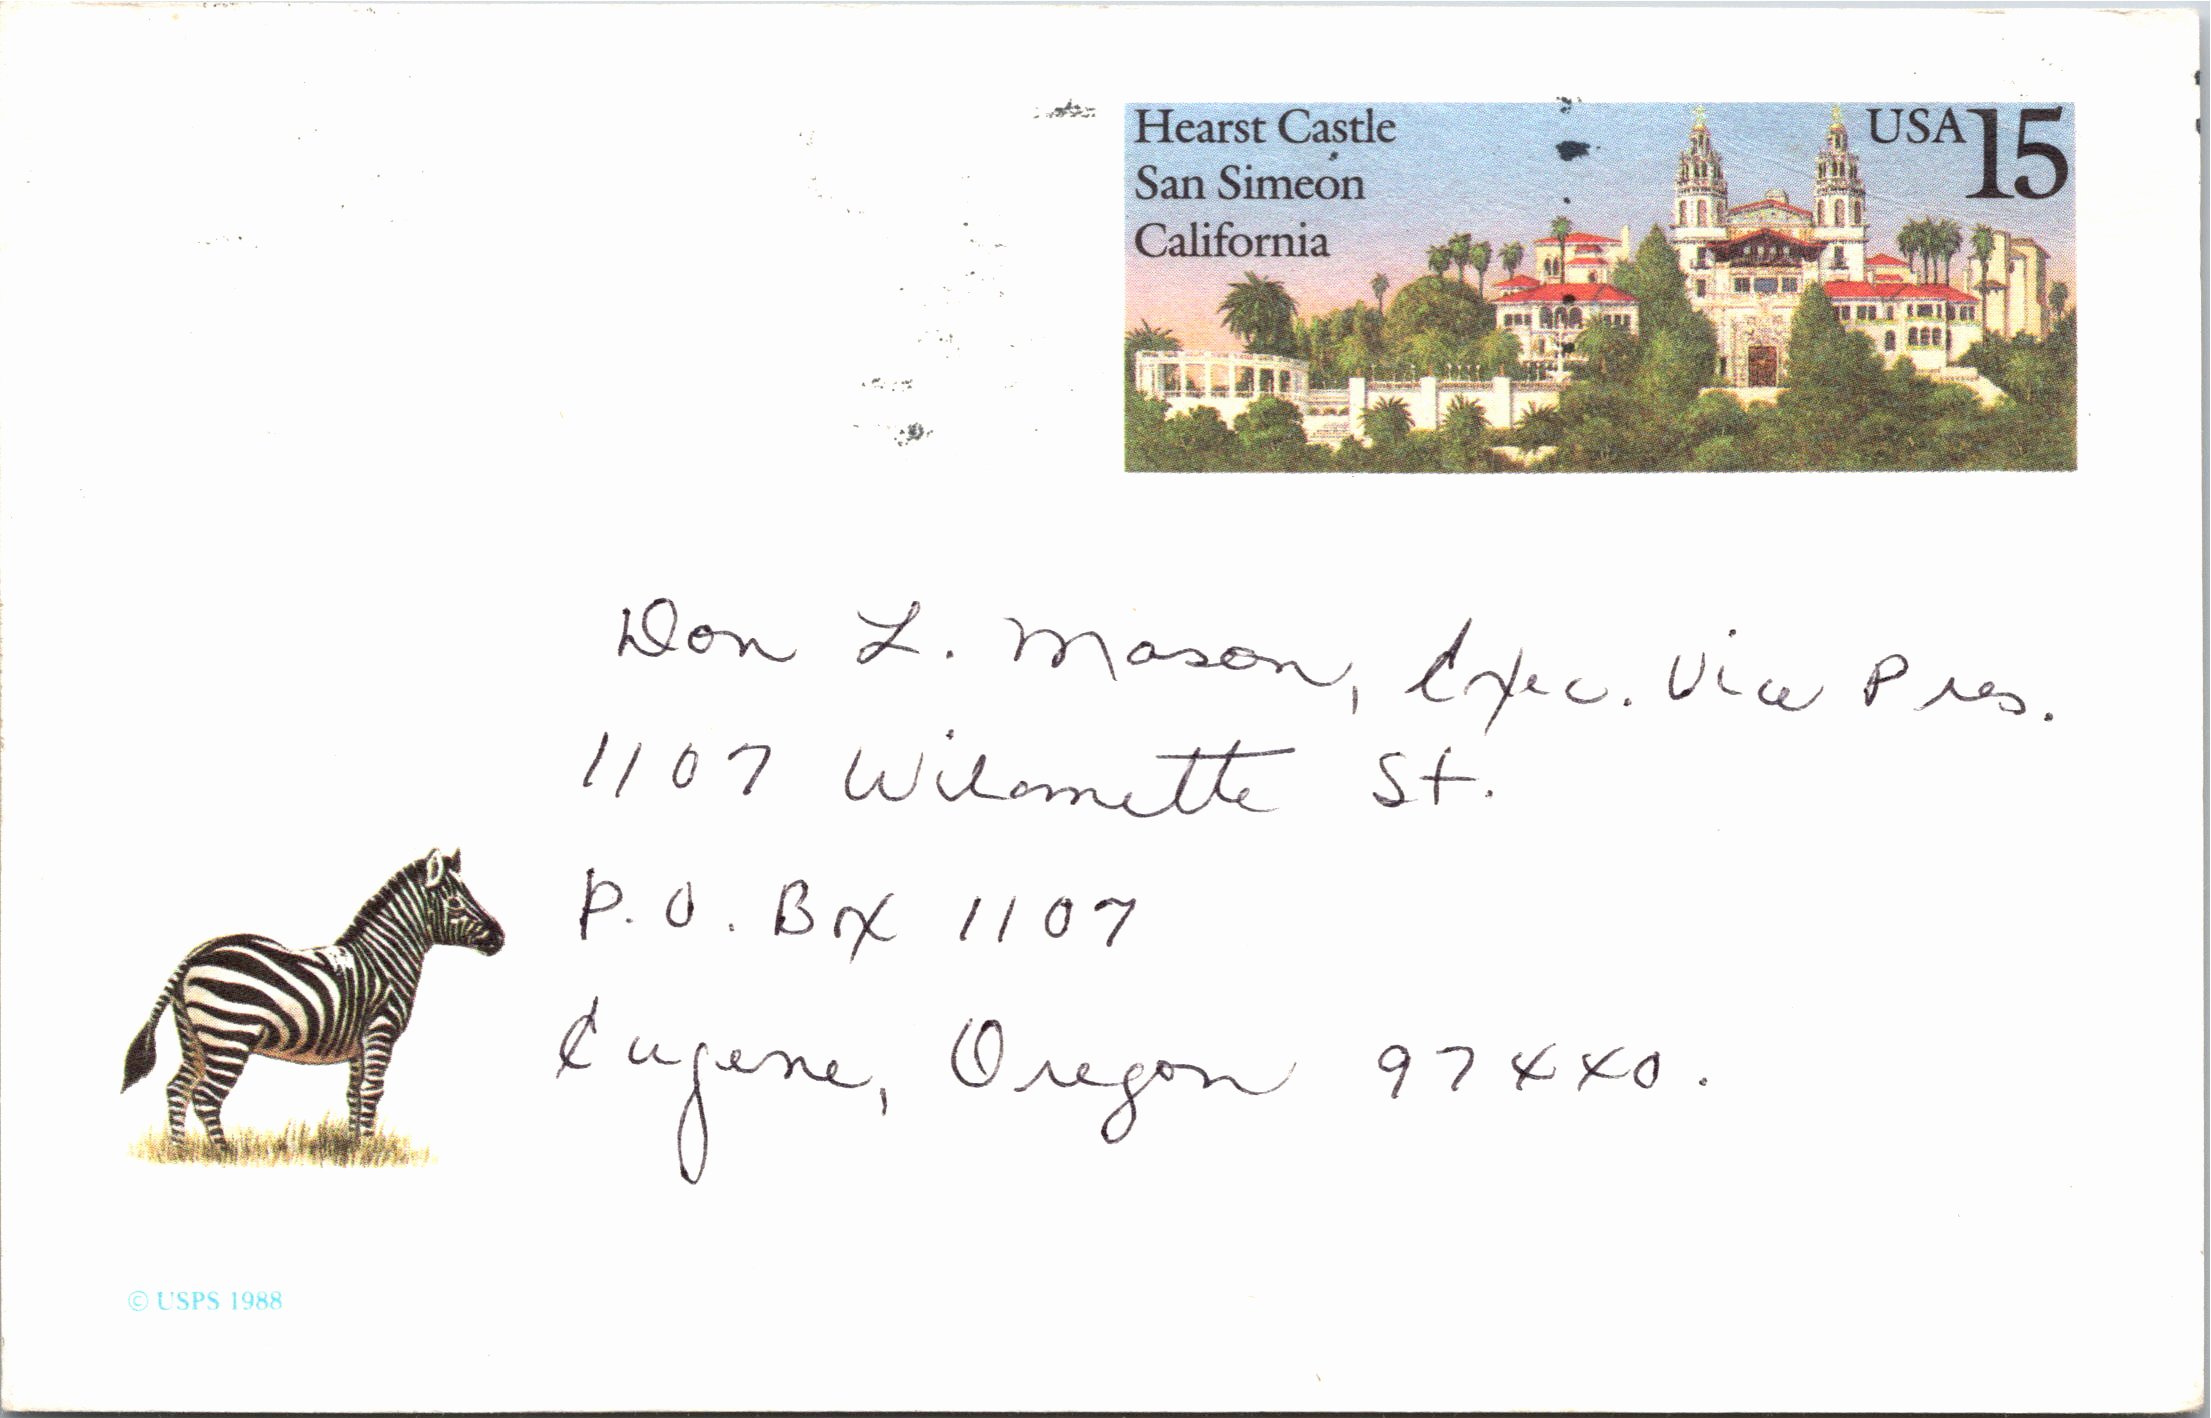 Hearst Castle
San Simeon
California
USA 15
Don L. Mason, Exec. Vice Pres.
1107 Wilamette St.
P.O. Box 1107
Eugene, Oregon 97440.
© USPS 1988